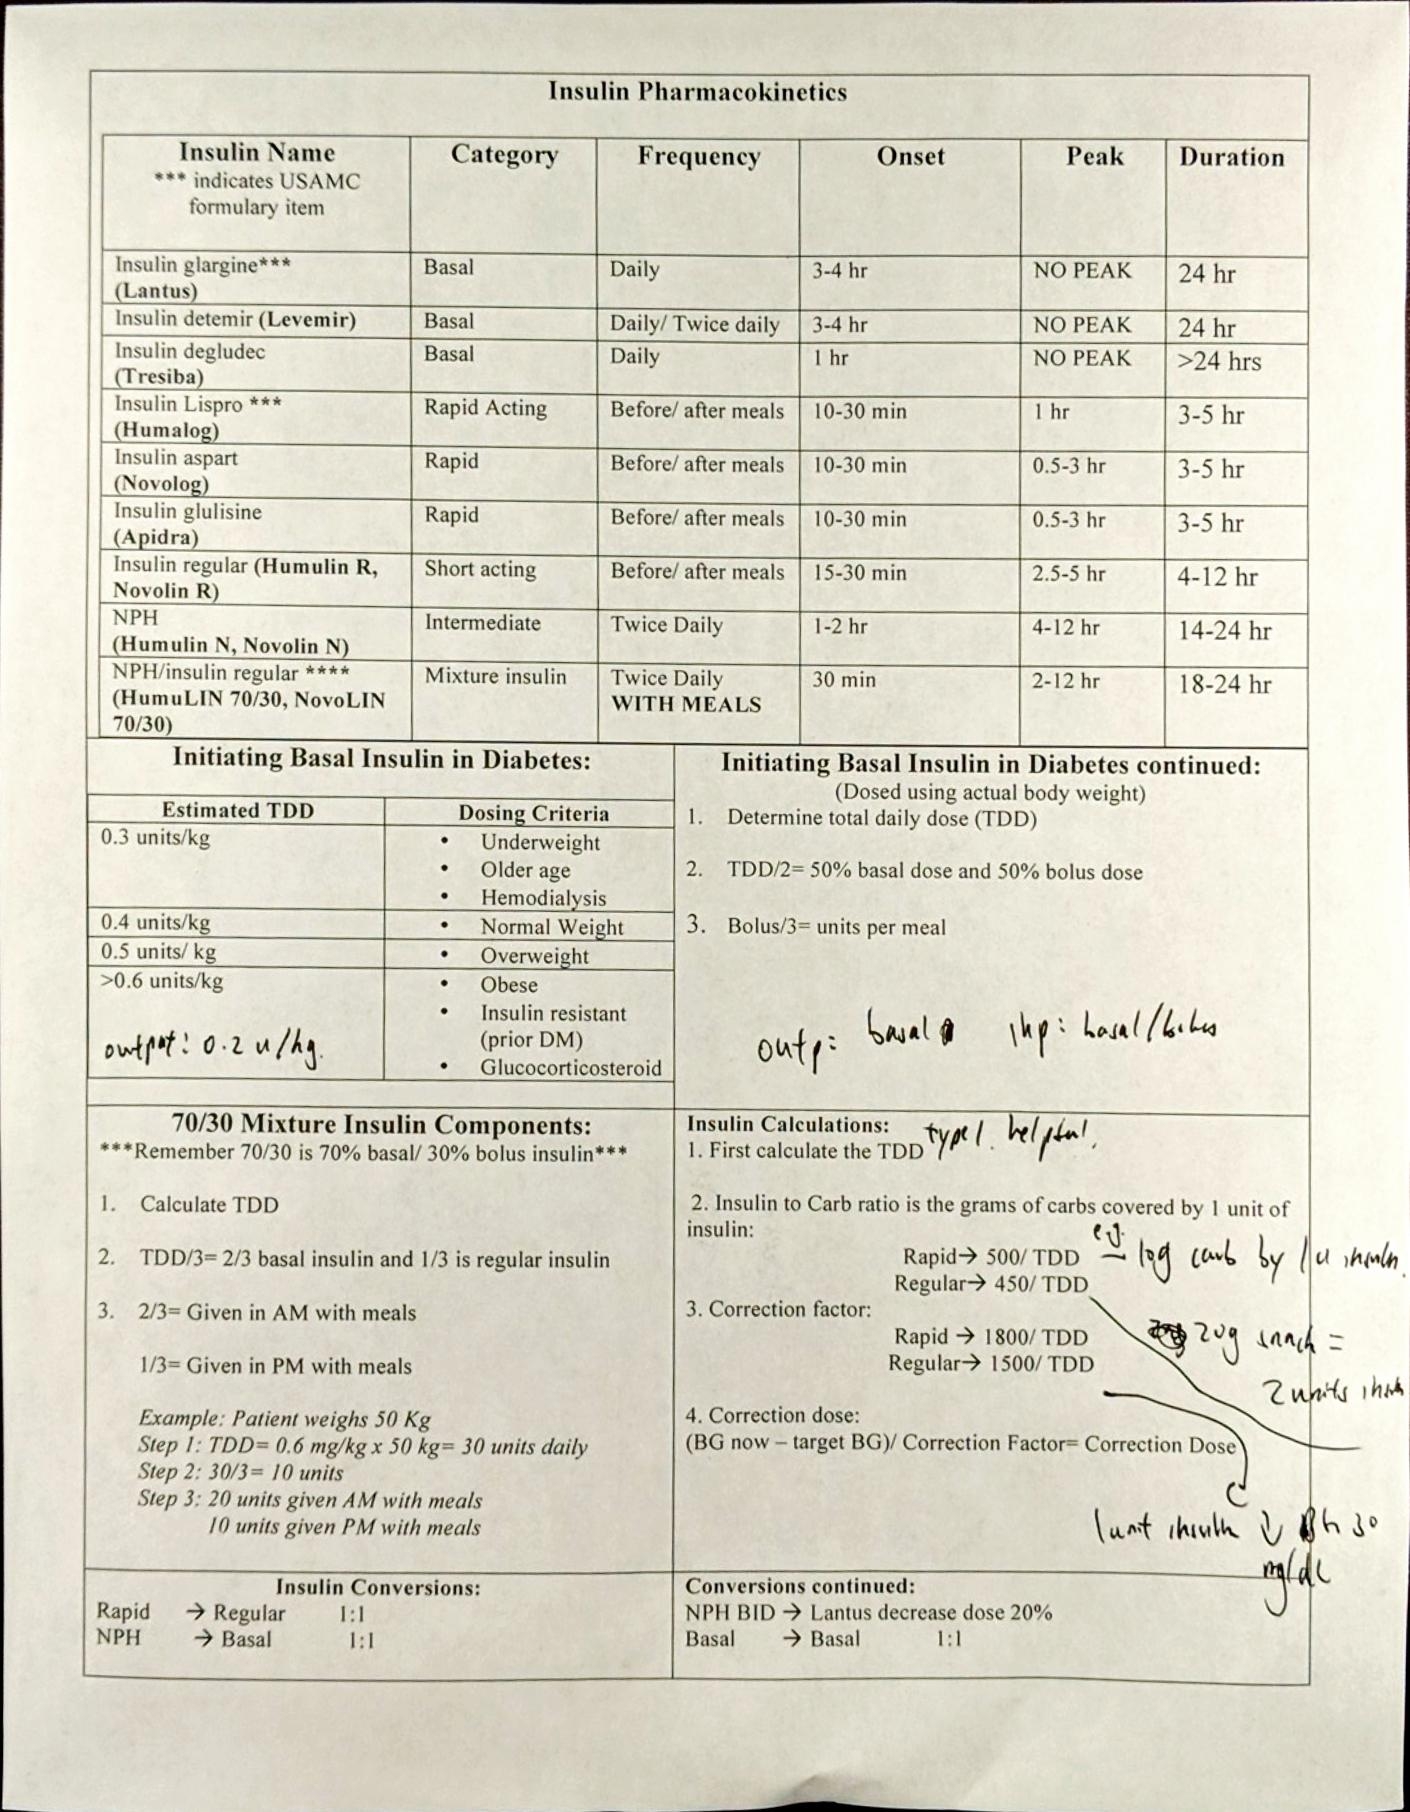 Insulin Pharmacokinetics
Insulin Name Category Frequency Onset Peak Duration
*** indicates USAMC
formulary item
Insulin glargine*** Basal Daily 3-4 hr NO PEAK 24 hr
(Lantus)
Insulin detemir (Levemir) Basal Daily/ Twice daily 3-4 hr NO PEAK 24 hr
Insulin degludec Basal Daily 1 hr NO PEAK >24 hrs
(Tresiba)
Insulin Lispro *** Rapid Acting Before/ after meals 10-30 min 1 hr 3-5 hr
(Humalog)
Insulin aspart Rapid Before/ after meals 10-30 min 0.5-3 hr 3-5 hr
(Novolog)
Insulin glulisine Rapid Before/ after meals 10-30 min 0.5-3 hr 3-5 hr
(Apidra)
Insulin regular (Humulin R, Short acting Before/ after meals 15-30 min 2.5-5 hr 4-12 hr
Novolin R)
NPH Intermediate Twice Daily 1-2 hr 4-12 hr 14-24 hr
(Humulin N, Novolin N)
NPH/insulin regular **** Mixture insulin Twice Daily 30 min 2-12 hr 18-24 hr
(HumuLIN 70/30, NovoLIN WITH MEALS
70/30)
Initiating Basal Insulin in Diabetes:
Estimated TDD Dosing Criteria
0.3 units/kg • Underweight
• Older age
• Hemodialysis
0.4 units/kg • Normal Weight
0.5 units/ kg • Overweight
>0.6 units/kg • Obese
• Insulin resistant
(prior DM)
• Glucocorticosteroid
output: 0.2 u/kg.
Initiating Basal Insulin in Diabetes continued:
(Dosed using actual body weight)
1. Determine total daily dose (TDD)
2. TDD/2= 50% basal dose and 50% bolus dose
3. Bolus/3= units per meal
outp: basal inp: basal/bolus
70/30 Mixture Insulin Components:
***Remember 70/30 is 70% basal/ 30% bolus insulin***
1. Calculate TDD
2. TDD/3= 2/3 basal insulin and 1/3 is regular insulin
3. 2/3= Given in AM with meals
1/3= Given in PM with meals
Example: Patient weighs 50 Kg
Step 1: TDD= 0.6 mg/kg x 50 kg= 30 units daily
Step 2: 30/3= 10 units
Step 3: 20 units given AM with meals
10 units given PM with meals
Insulin Calculations:
type 1. helpful.
1. First calculate the TDD
2. Insulin to Carb ratio is the grams of carbs covered by 1 unit of
insulin:
Rapid→ 500/ TDD
e.g. 10g carb by 1 u insulin.
Regular→ 450/ TDD
3. Correction factor:
Rapid → 1800/ TDD
20g snack =
Regular→ 1500/ TDD
2 units
4. Correction dose:
(BG now – target BG)/ Correction Factor= Correction Dose
1 unit insulin ↓ 30
mg/dL
Insulin Conversions:
Rapid → Regular 1:1
NPH → Basal 1:1
Conversions continued:
NPH BID → Lantus decrease dose 20%
Basal → Basal 1:1